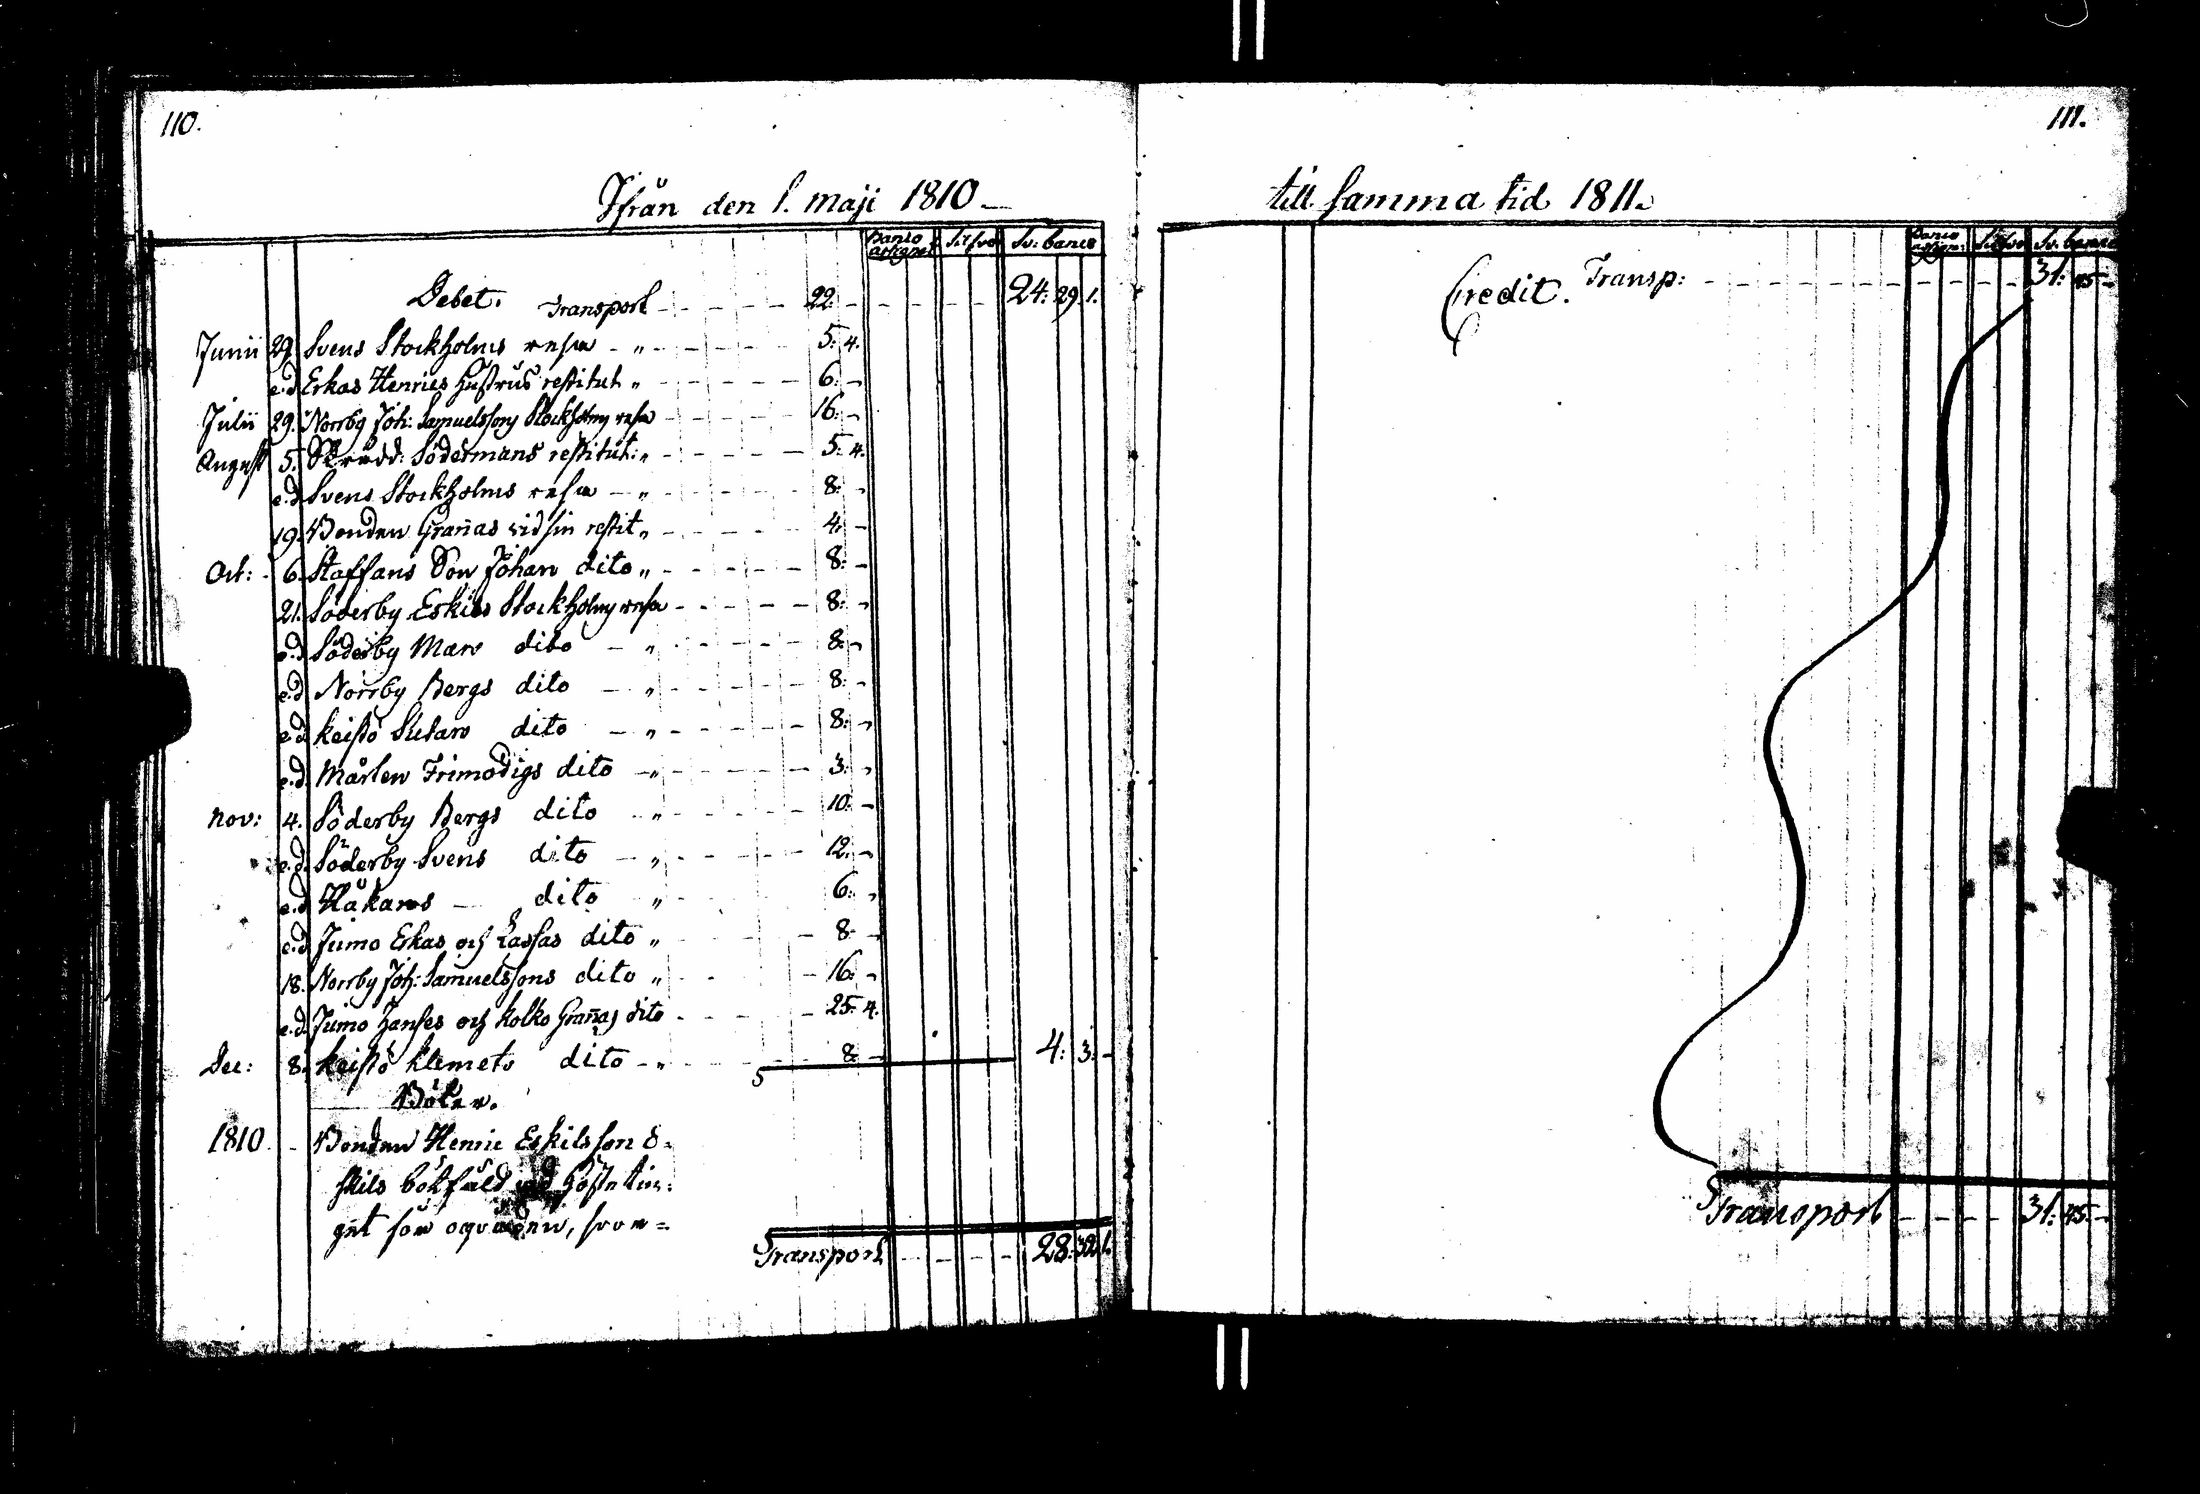 110.
Ifrån den 1. maji 1810 —
Banco assignat Silfver Sv: banco
Debet. Transport 22. - 24: 29. 1.
Junii 29. Svens Stockholms resa - „ 5: 4.
e.d. Erkas Henrics hustrus restitut: „ 6: -
Julii 29. Norrby Joh: Samuelssons Stockholms resa 16: -
August 5. Skrädd: Södermans restitut: „ 5: 4.
e.d. Svens Stockholms resa — „ 8: -
19. Bonden Grañas vid sin restit „ 4: -
Oct: 6. Staffans Son Johan dito „ 8: -
21. Söderby Eskils Stockholms resa 8: -
e.d. Söderby Mars dito — „ 8: -
e.d. Norrby Bergs dito — „ 8: -
e.d. Keistö Sutars dito — „ 8: -
e.d. Mårten Frimodigs dito — „ 3: -
Nov: 4. Söderby Bergs dito „ 10: -
e.d. Söderby Svens dito — „ 12: -
e.d. Håkans — dito „ 6: -
e.d. Jumo Erkas och Lassas dito „ 8: -
18. Norrby Joh: Samuelssons dito „ 16: -
e.d. Jumo Hanses och Kolko Grañas dito 25: 4.
Dec: 8. Keistö Klemets dito - „ 8: - 4: 3: -
Böter.
1810 - Bonden Henric Eskilsson E-
skils bötfäld vid höste tin-
get för oqväden, sven=
Transport 28: 32. 1.
111.
till samma tid 1811.
Banco assign: Silfver Sv: banco
Credit. Transp: 31: 45 -
Transport 31: 45. -